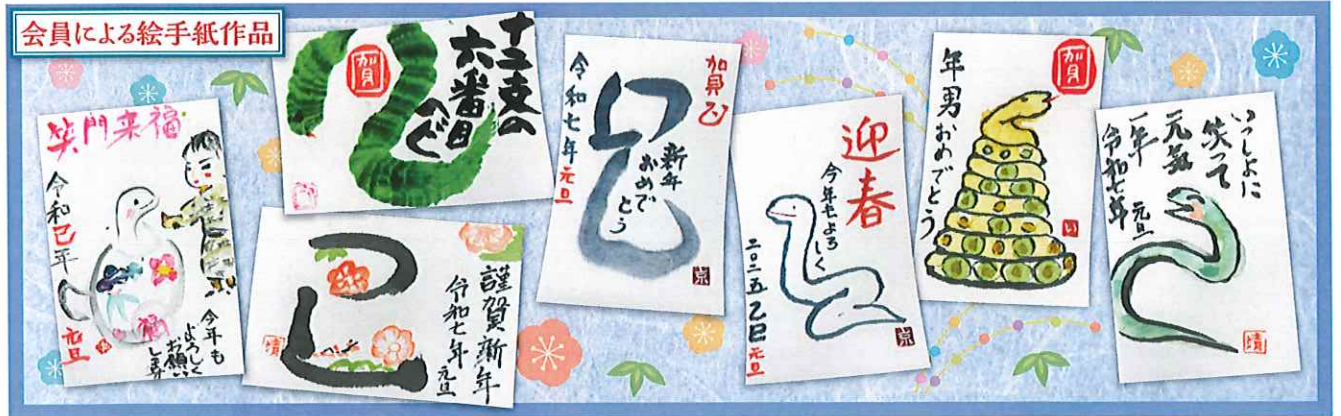 会員による絵手紙作品
笑門来福
令和巳年
元旦
福
今年も
よろしく
お願い
します
賀
十二支の
六番目
へび
謹賀新年
令和七年
元旦
賀正
新年
おめで
とう
令和七年元旦
京
迎春
今年もよろ
しく
二〇二五乙巳元旦
京
賀
年男おめでとう
い
いっしょに
笑って
元気
一年
元旦
令和七年